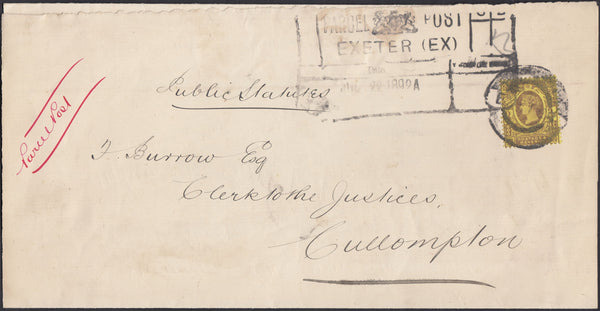 PARCEL POST
EXETER (EX)
1892A
Public Statutes
Parcel Post
F. Burrow Esq
Clerk to the Justices,
Cullompton